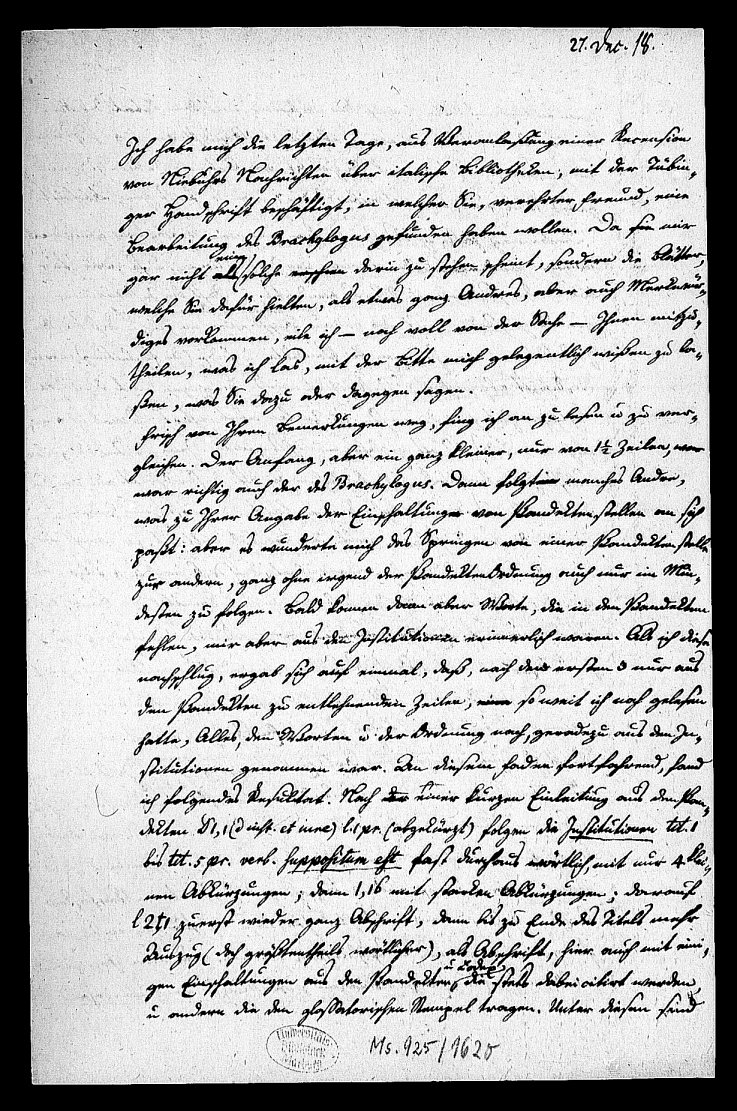 27. Dec. 18.
Ich habe mich die letzten Tage, aus Veranlaßung einer Recension
von Niebuhrs Nachrichten über italische Bibliotheken, mit der Tübin-
ger Handschrift beschäftigt, in welcher Sie, verehrter Freund, eine
Bearbeitung des Brachylogus gefunden haben wollen. Da sie mir
gar nicht eine solche darin zu stehen scheint, sondern die Blätter,
welche Sie dafür hielten, als etwas ganz Anderes, aber auch Merkwür-
diges vorkommen, eile ich — noch voll von der Sache — Ihnen mitzu-
theilen, was ich las, mit der Bitte mich gelegentlich wißen zu la-
ßen, was Sie dazu oder dagegen sagen.
Frisch von Ihren Bemerkungen weg, fing ich an zu lesen u zu ver-
gleichen. Der Anfang, aber ein ganz kleiner, nur von 1½ Zeilen,
war richtig auch der des Brachylogus. Dann folgten manches Andre,
was zu Ihrer Angabe der Einschaltungen von Pandektenstellen an sich
paßt: aber es wunderte mich das Springen von einer Pandektenstelle
zur andern, ganz ohne irgend der PandektenOrdnung auch nur im Min-
desten zu folgen. Bald kamen dann aber Worte, die in den Pandekten
fehlen, mir aber aus den Institutionen erinnerlich waren. Als ich diese
nachschlug, ergab sich auf einmal, daß, nach den ersten 3 nur aus
den Pandekten zu entlehnenden Zeilen, so weit ich noch gelesen
hatte, Alles, den Worten u der Ordnung nach, geradezu aus den In-
stitutionen genommen war. An diesem Faden fortfahrend, fand
ich folgendes Resultat. Nach einer kurzen Einleitung aus den Pan-
dekten D 1,1 (d inst. et iure) l. 1 pr. (abgekürzt) folgen die Institutionen tit. 1
bis tit. 5 pr. verb. suppositum est fast durchaus wörtlich, mit nur 4 klei-
nen Abkürzungen; dann 1,16 mit starken Abkürzungen; darauf
l 2 t 1 zuerst wieder ganz Abschrift, dann bis zu Ende des Titels mehr
Auszug (doch größtentheils wörtlicher), als Abschrift, hier auch mit eini-
gen Einschaltungen aus den Pandekten u Codex, die stets dabei citirt werden,
u andern die den glossatorischen Stempel tragen. Unter diesen sind
Universitäts
Bibliothek
Marburg
Ms. 925/1620